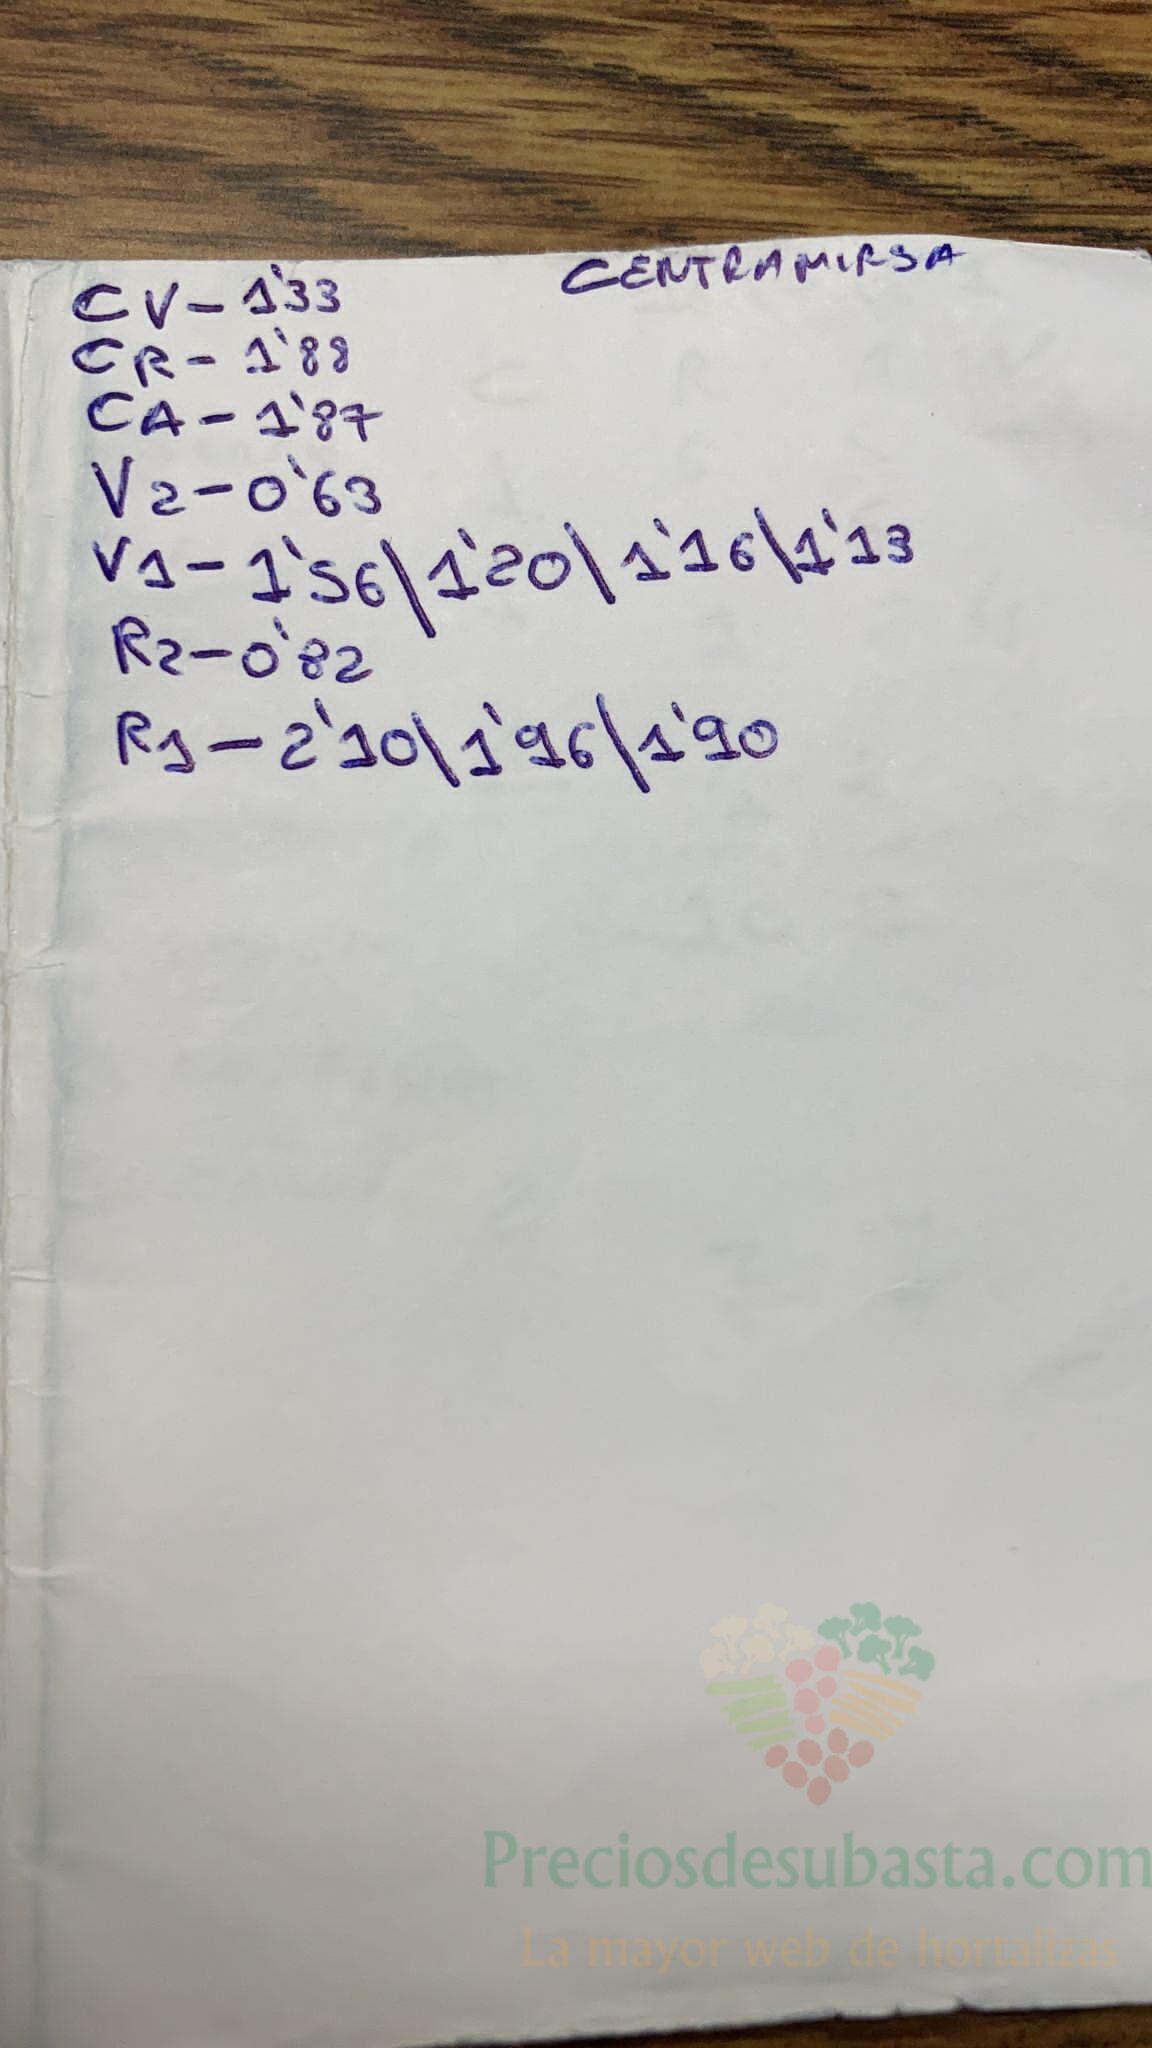 CENTRAMIRSA
CV - 1'33
CR - 1'88
CA - 1'87
V2 - 0'63
V1 - 1'56\1'20\1'16\1'13
R2 - 0'82
R1 - 2'10\1'96\1'90
Preciosdesubasta.com
La mayor web de hortalizas